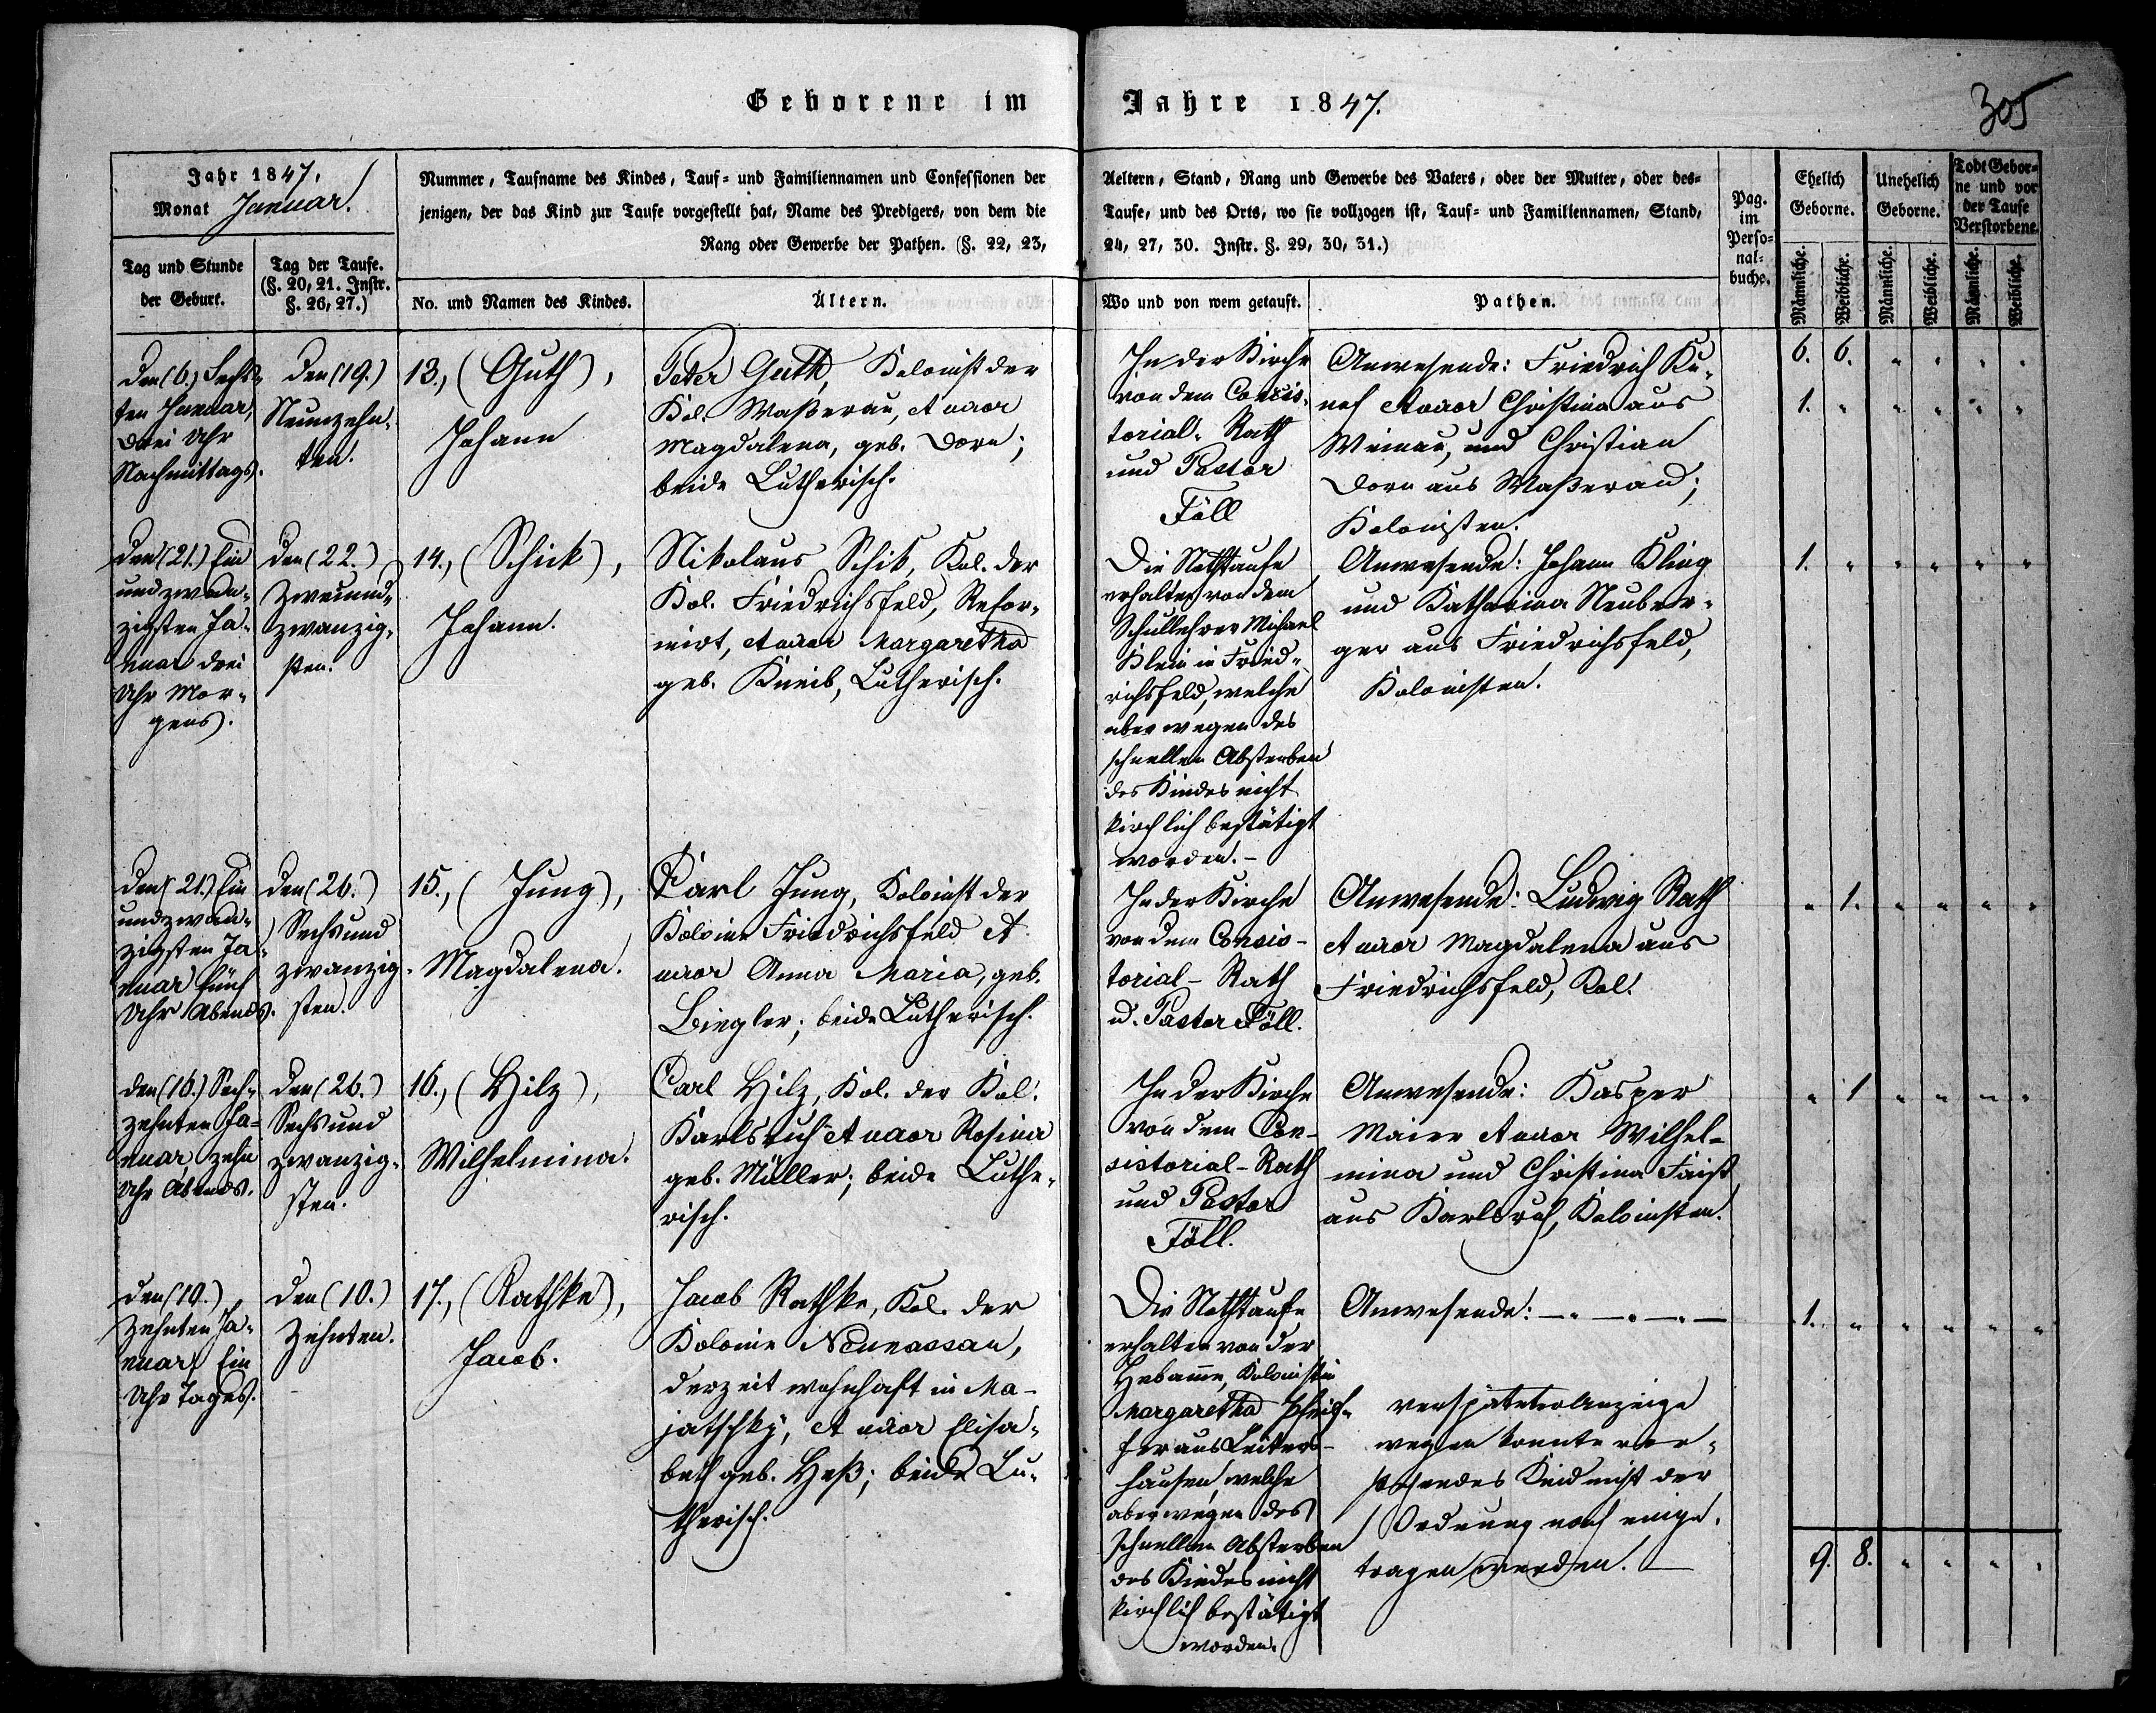 Geborene im Jahre 1847.
305
Jahr 1847.
Monat Januar.
Tag und Stunde
der Geburt.
Tag der Taufe.
(§. 20, 21. Instr.
§. 26, 27.)
Nummer, Taufname des Kindes, Tauf- und Familiennamen und Confessionen der
jenigen, der das Kind zur Taufe vorgestellt hat, Name des Predigers, von dem die
Rang oder Gewerbe der Pathen. (§. 22, 23,
No. und Namen des Kindes.
Ältern.
Aeltern, Stand, Rang und Gewerbe des Vaters, oder der Mutter, oder des-
Taufe, und des Orts, wo sie vollzogen ist, Tauf- und Familiennamen, Stand,
24, 27, 30. Instr. §. 29, 30, 31.)
Wo und von wem getauft.
Pathen.
Pag.
im
Perso-
nal-
buche.
Ehelich
Geborne.
Unehelich
Geborne.
Todt Gebor-
ne und vor
der Taufe
Verstorbene.
Männliche.
Weibliche.
Männliche.
Weibliche.
Männliche.
Weibliche.
den (6.) Sechs-
ten Januar,
drei Uhr
Nachmittags.
den (19.)
Neunzehn-
ten.
13., (Guth),
Johann
Peter Guth, Kolonist der
Kol. Waßerau, et uxor
Magdalena, geb. Dorn;
beide Lutherisch.
In der Kirche
von dem Consis-
torial-Rath
und Pastor
Föll
Anwesende: Friedrich Ku-
nef et uxor Christina aus
Weinau, und Christian
Dorn aus Waßerau;
Kolonisten.
6. 6. " " " "
1. " " " " "
den (21.) Ein
und zwan-
zigsten Ja-
nuar drei
Uhr Mor-
gens.
den (22.)
Zweiund-
zwanzig-
sten.
14., (Schick),
Johann.
Nikolaus Schik, Kol. der
Kol. Friedrichsfeld, Refor-
mirt, et uxor Margaretha
geb. Kneib, Lutherisch.
Die Nothtaufe
erhalten von dem
Schullehrer Michael
Klein in Fried-
richsfeld, welche
aber wegen des
schnellen Absterben
des Kindes nicht
kirchlich bestätigt
worden. -
Anwesende: Johann Kling
und Katharina Neuber-
ger aus Friedrichsfeld,
Kolonisten.
1. " " " " "
den (21.) Ein
und zwan-
zigsten Ja-
nuar fünf
Uhr Abends.
den (26.)
Sechs und
zwanzig-
sten.
15., (Jung),
Magdalena.
Carl Jung, Kolonist der
Kolonie Friedrichsfeld et
uxor Anna Maria, geb.
Biegler; beide Lutherisch.
In der Kirche
von dem Consis-
torial-Rath
u. Pastor Föll.
Anwesende: Ludwig Rath
et uxor Magdalena aus
Friedrichsfeld, Kol.
" 1. " " " "
den (16.) Sech-
zehnten Ja-
nuar, zehn
Uhr Abends.
den (26.)
Sechs und
zwanzig-
sten.
16., (Hilz),
Wilhelmina.
Carl Hilz, Kol. der Kol.
Karlsruh et uxor Rosina
geb. Müller; beide Luthe-
risch.
In der Kirche
von dem Con-
sistorial-Rath
und Pastor
Föll.
Anwesende: Kasper
Maier et uxor Wilhel-
mina und Christina Faiß
aus Karlsruh, Kolonisten.
" 1 " " " "
den (10.)
Zehnten Ja-
nuar Ein
Uhr Tages.
den (10.)
Zehnten.
17., (Rathke),
Jacob.
Jacob Rathke, Kol. der
Kolonie Neunassau,
derzeit wohnhaft in Ma-
jatschky, et uxor Elisa-
beth geb. Heß; beide Lu-
therisch.
Die Nothtaufe
erhalten von der
Hebamme, Kolonistin
Margaretha Pfeif-
fer aus Leiters-
hausen, welche
aber wegen des
schnellen Absterben
des Kindes nicht
kirchlich bestätigt
worden.
Anwesende: -"-"-"-
verspäteter Anzeige
wegen konnte vor-
stehendes Kind nicht der
Ordnung nach einge-
tragen werden. -
1. " " " " "
9. 8. " " " "